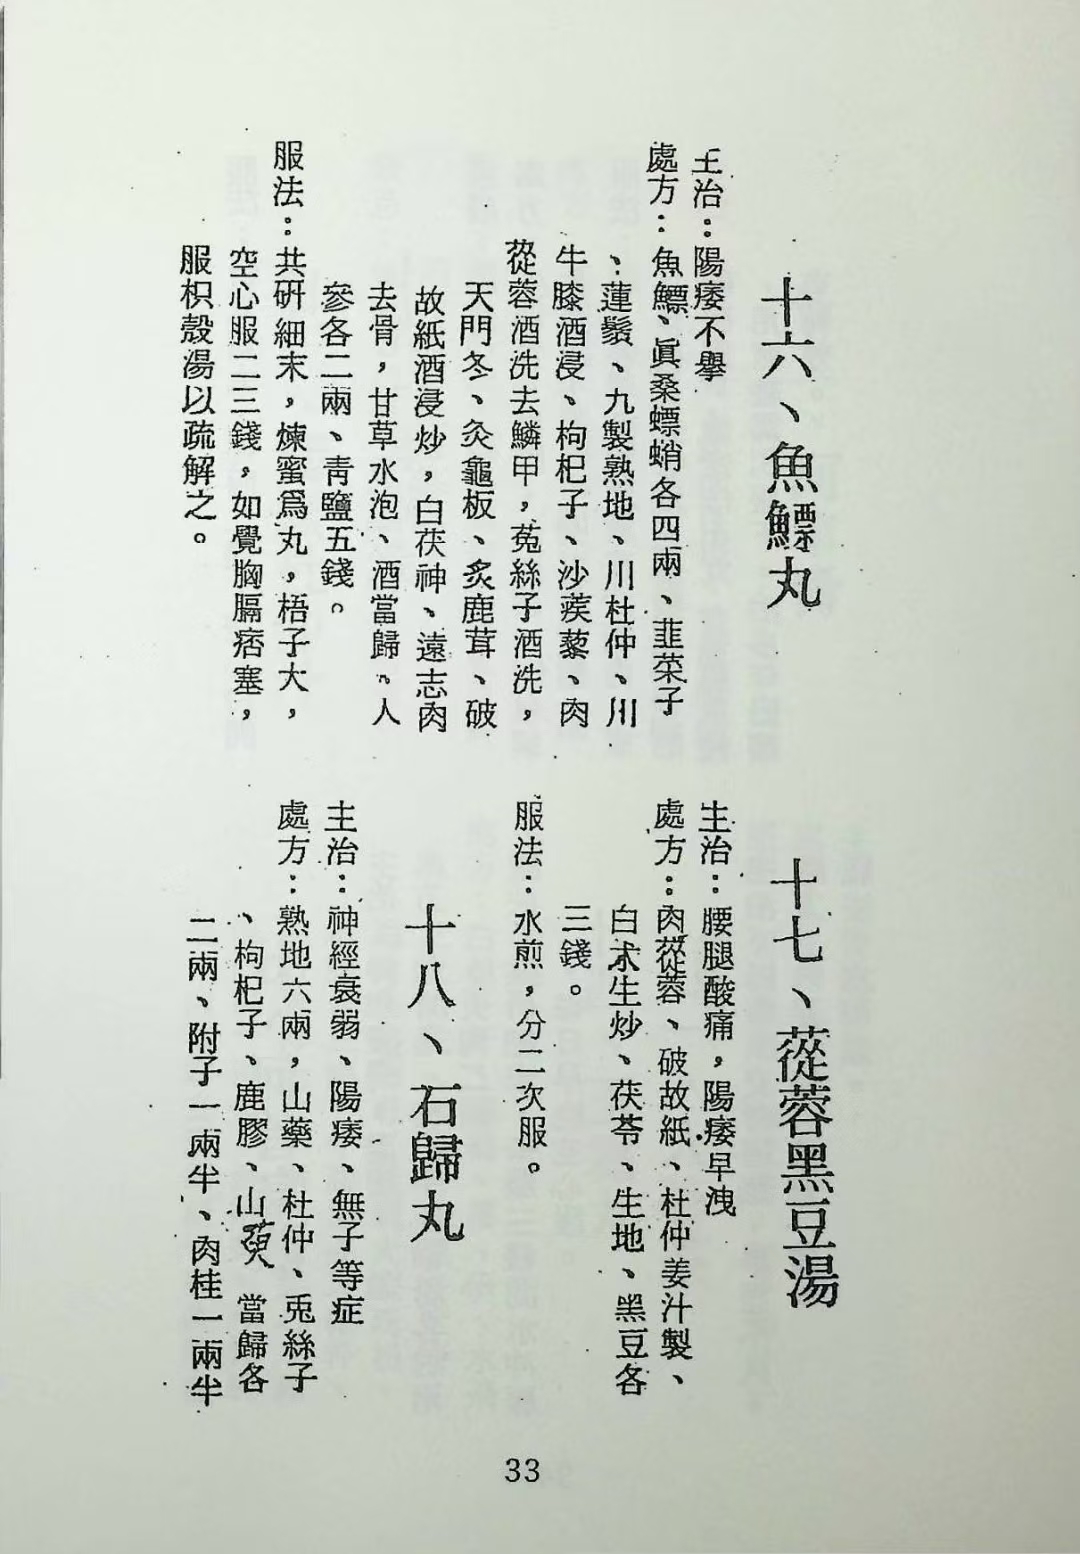 十六、魚鰾丸
主治：陽痿不舉
處方：魚鰾、眞桑螵蛸各四兩、韭菜子
、蓮鬚、九製熟地、川杜仲、川
牛膝酒浸、枸杞子、沙蒺藜、肉
蓯蓉酒洗去鱗甲，菟絲子酒洗，
天門冬、灸龜板、炙鹿茸、破
故紙酒浸炒，白茯神、遠志肉
去骨，甘草水泡、酒當歸、人
參各二兩、靑鹽五錢。
服法：共硏細末，煉蜜爲丸，梧子大，
空心服二三錢，如覺胸膈痞塞，
服枳殼湯以疏解之。
十七、蓯蓉黑豆湯
主治：腰腿酸痛，陽痿早洩
處方：肉蓯蓉、破故紙、杜仲姜汁製、
白朮生炒、茯苓、生地、黑豆各
三錢。
服法：水煎，分二次服。
十八、石歸丸
主治：神經衰弱、陽痿、無子等症
處方：熟地六兩，山藥、杜仲、兎絲子
、枸杞子、鹿膠、山萸 當歸各
二兩、附子一兩半、肉桂一兩半
33